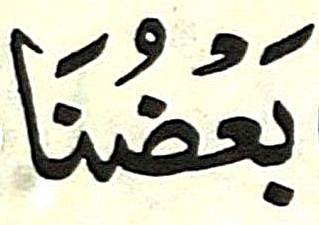 بَعْضُنَا